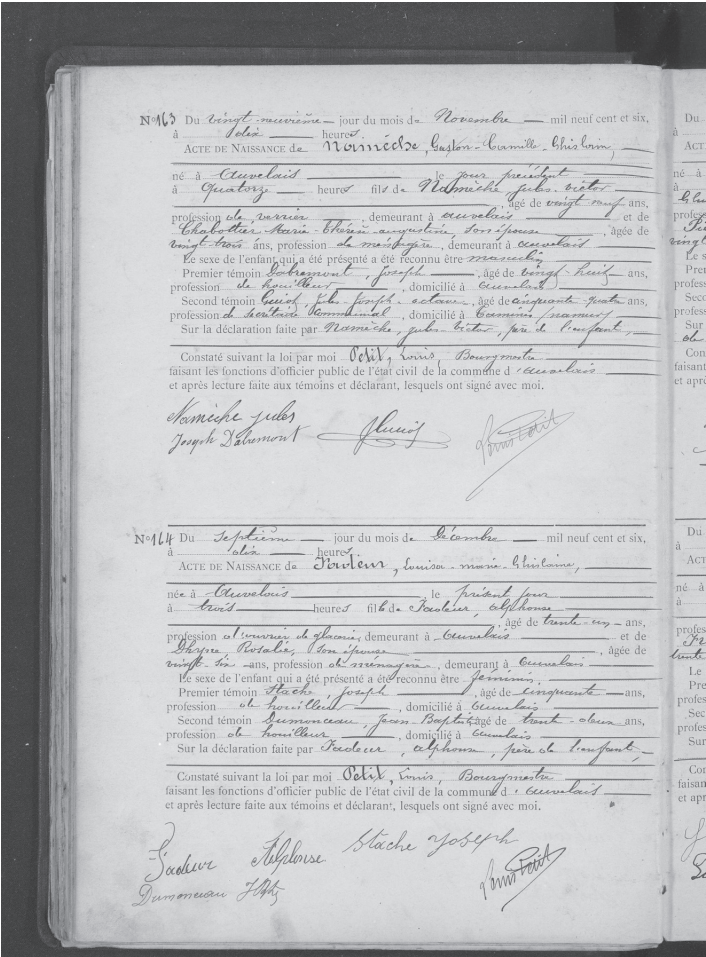 N° 163 Du vingt-neuvième jour du mois de Novembre mil neuf cent et six,
à dix heures
ACTE DE NAISSANCE de Namèche, Gaston-Camille-Ghislain,
né à Auvelais le jour précédent
à quatorze heures fils de Namèche, Jules-Victor
, âgé de vingt neuf ans,
profession de verrier , demeurant à Auvelais et de
Chabottier Marie-Thérèse-Augustine, son épouse , âgée de
vingt trois ans, profession de ménagère, demeurant à Auvelais
Le sexe de l'enfant qui a été présenté a été reconnu être masculin
Premier témoin Dabremont, Joseph , âgé de vingt-huit ans,
profession de houilleur , domicilié à Auvelais
Second témoin Guiot, Jules-Joseph-Octave, âgé de cinquante-quatre ans,
profession de secrétaire communal , domicilié à Tamines (Namur)
Sur la déclaration faite par Namèche, Jules-Victor, père de l'enfant,
Constaté suivant la loi par moi Petit, Louis, Bourgmestre
faisant les fonctions d'officier public de l'état civil de la commune d'Auvelais
et après lecture faite aux témoins et déclarant, lesquels ont signé avec moi.
Namèche Jules
Joseph Dabremont JGuiot Louis Petit
N° 164 Du septième jour du mois de Décembre mil neuf cent et six,
à dix heures
ACTE DE NAISSANCE de Fadeur, Louisa-Marie-Ghislaine,
née à Auvelais le présent jour
à trois heures fille de Fadeur, Alphonse
, âgé de trente-un ans,
profession d'ouvrier de glacerie, demeurant à Auvelais et de
Rosalie, son épouse , âgée de
vingt-six ans, profession de ménagère , demeurant à Auvelais
Le sexe de l'enfant qui a été présenté a été reconnu être féminin
Premier témoin Stache, Joseph , âgé de cinquante ans,
profession de houilleur , domicilié à Auvelais
Second témoin Dumonceau, Jean-Baptiste, âgé de trente-deux ans,
profession de houilleur , domicilié à Auvelais
Sur la déclaration faite par Fadeur, Alphonse, père de l'enfant,
Constaté suivant la loi par moi Petit, Louis, Bourgmestre
faisant les fonctions d'officier public de l'état civil de la commune d'Auvelais
et après lecture faite aux témoins et déclarant, lesquels ont signé avec moi.
Fadeur Alphonse Stache Joseph
Dumonceau Louis Petit